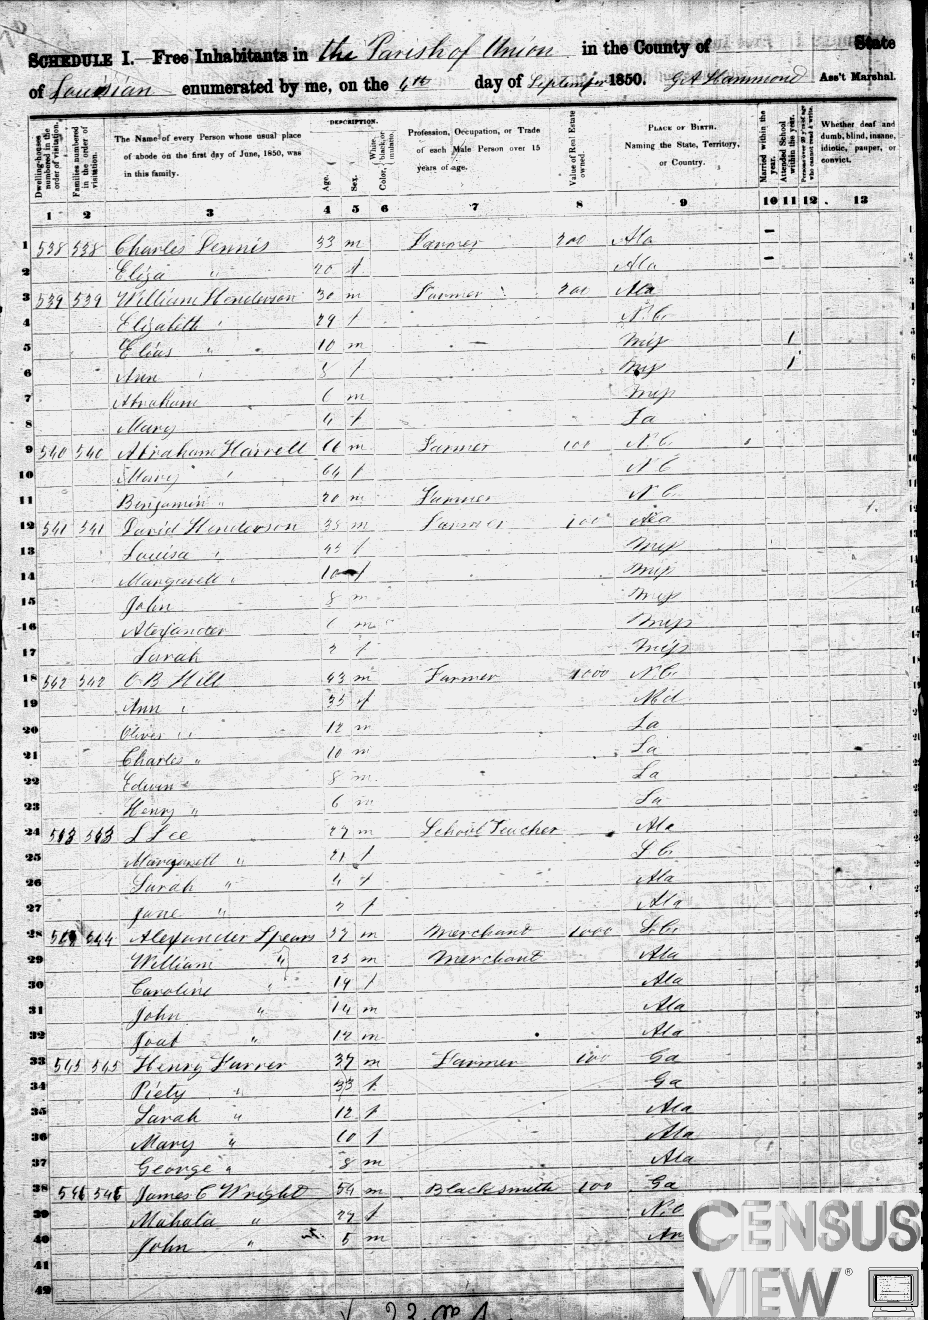 SCHEDULE I.—Free Inhabitants in the Parish of Union in the County of State
of Louisian enumerated by me, on the 6th day of September 1850. Ass't Marshal.
Dwelling-houses numbered in the order of visitation.
Families numbered in the order of visitation.
The Name of every Person whose usual place of abode on the first day of June, 1850, was in this family.
DESCRIPTION.
Age.
Sex.
Color, White, black, or mulatto.
Profession, Occupation, or Trade of each Male Person over 15 years of age.
Value of Real Estate owned.
PLACE OF BIRTH. Naming the State, Territory, or Country.
Married within the year.
Attended School within the year.
Persons over 20 y'rs of age who cannot read & write.
Whether deaf and dumb, blind, insane, idiotic, pauper, or convict.
1 2 3 4 5 6 7 8 9 10 11 12 13
1 538 538 Charles Dennis 33 m Farmer 200 Ala
2 Eliza " 20 f Ala
3 539 539 William Henderson 30 m Farmer 200 Ala
4 Elizabeth " 29 f N.C.
5 Elias " 10 m Miss 1
6 Ann " f Miss 1
7 Abraham 6 m Miss
8 Mary 4 f La
9 540 540 Abraham Harrell 66 m Farmer 100 N.C.
10 Mary " 64 f N C
11 Benjamin " 20 m Farmer N C.
12 541 541 David Henderson 35 m Farmer 100 Ala
13 Louisa " f Miss
14 Margarett " 10 f Miss
15 John 8 m Miss
16 Alexander 6 m Miss
17 Sarah 2 f Miss
18 542 542 O B Hill 43 m Farmer 1000 N.C.
19 Ann " 35 f Md
20 Oliver " 12 m La
21 Charles " 10 m La
22 Edwin " 8 m La
23 Henry " 6 m La
24 543 543 L Lee 27 m School Teacher Ala
25 Margarett " 21 f S C.
26 Sarah " 4 f Ala
27 Jane " 2 f Ala
28 544 544 Alexander Spears 37 m Merchant 1000 S.C.
29 William " 25 m Merchant Ala
30 Caroline " 19 f Ala
31 John " 14 m Ala
32 " 12 m Ala
33 545 545 Henry Farrer 37 m Farmer 100 Ga
34 Piety " 33 f Ga
35 Sarah " 12 f Ala
36 Mary " 10 f Ala
37 George " 8 m Ala
38 546 546 James C Wright 54 m Blacksmith 100 Ga
39 Mahala " 27 f N.C
40 John " 5 m Ar
41
42
CENSUS
VIEW®